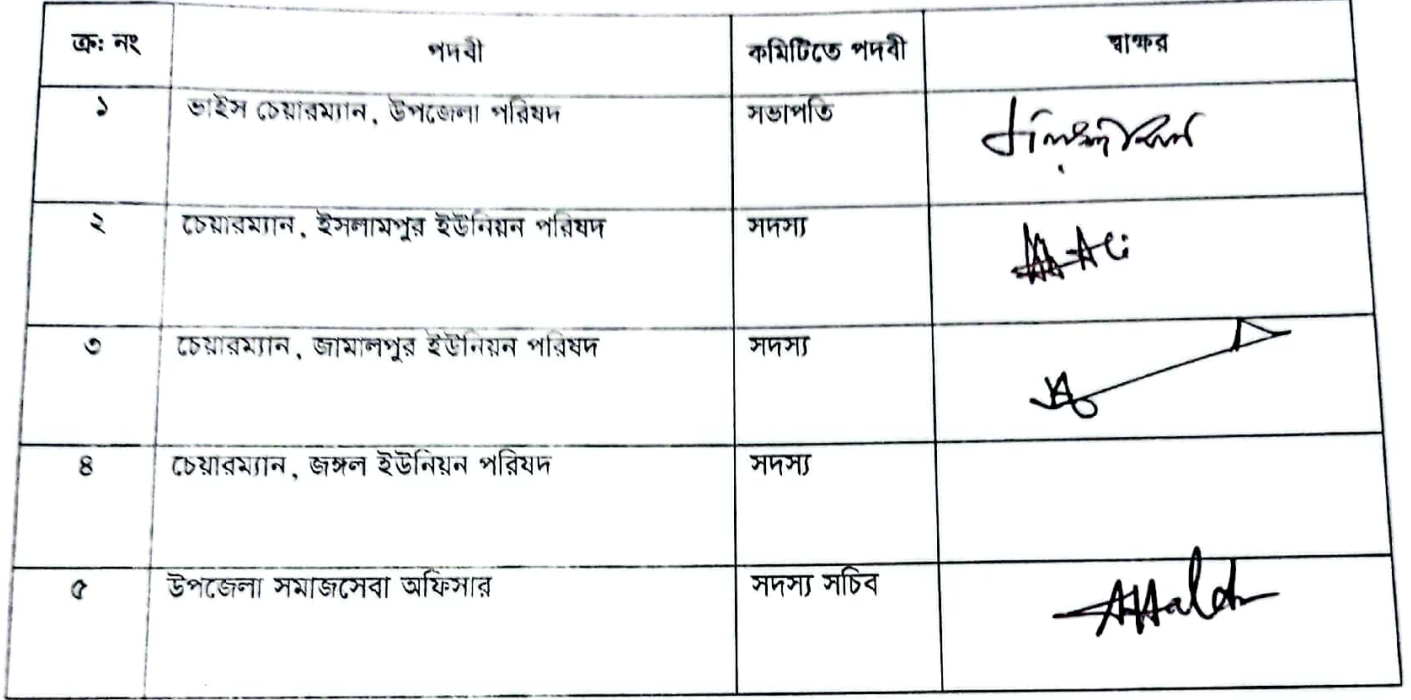 ক্রঃ নং পদবী কমিটিতে পদবী স্বাক্ষর
১ ভাইস চেয়ারম্যান, উপজেলা পরিষদ সভাপতি
২ চেয়ারম্যান, ইসলামপুর ইউনিয়ন পরিষদ সদস্য
৩ চেয়ারম্যান, জামালপুর ইউনিয়ন পরিষদ সদস্য
৪ চেয়ারম্যান, জঙ্গল ইউনিয়ন পরিষদ সদস্য
৫ উপজেলা সমাজসেবা অফিসার সদস্য সচিব